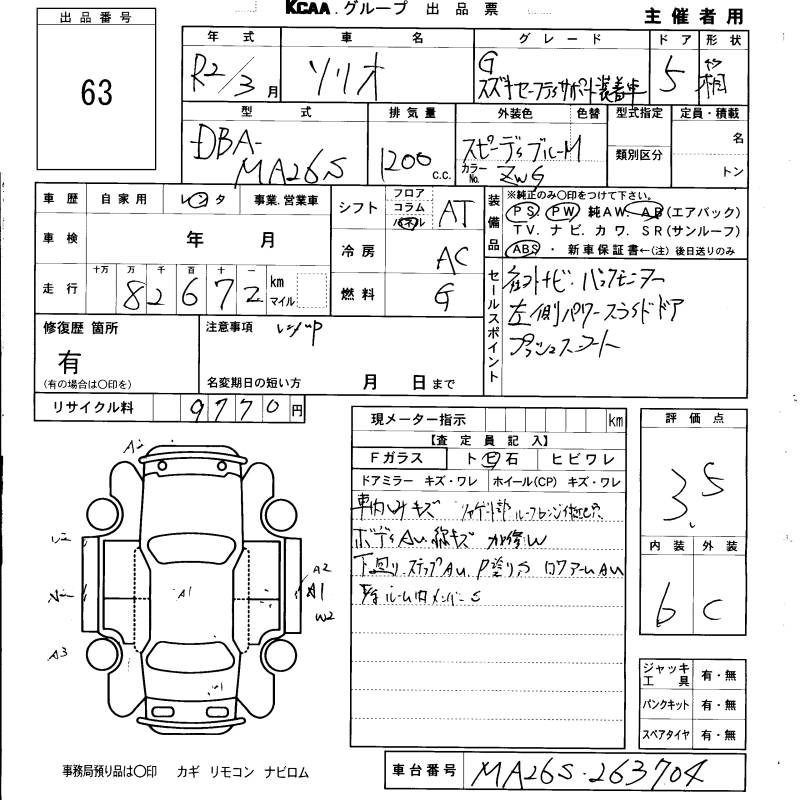 KCAA.グループ 出品票
主催者用
出品番号
63
年式 車名 グレード ドア 形状
R2/3月 ソリオ G 5 箱
スズキセーフティサポート装着車
型式 排気量 外装色 色替 型式指定 定員・積載
DBA- スピーディブルーM 名
MA26S 1200 c.c. カラーNo. ZWG 類別区分 トン
車歴 自家用 レンタ 事業.営業車
シフト フロア コラム パネル AT
装備品 ※純正のみ〇印をつけて下さい。
PS PW 純AW. AB(エアバック)
TV. ナビ. カワ. SR(サンルーフ)
ABS ・ 新車保証書←(注)後日送りのみ
車検 年 月
冷房 AC
走行 十万 万 千 百 十 一
82672 km マイル
燃料 G
セールスポイント
社外ナビ・バックモニター
左側パワースライドドア
プッシュスタート
修復歴 箇所
有
(有の場合は〇印を)
注意事項 レンタUP
名変期日の短い方 月 日まで
リサイクル料 9770円
現メーター指示 km
【査定員記入】
Fガラス ト石 ヒビワレ
ドアミラー キズ・ワレ ホイール(CP) キズ・ワレ
車内シミキズ
ボディAU.線キズ 加修W
下廻り.ステップAU. P塗りS ロワアームAU
ルーム内メンバーS
評価点
3.5
内装 外装
6 C
A2
A1
W2
A1
A3
ジャッキ工具 有・無
パンクキット 有・無
スペアタイヤ 有・無
事務局預り品は〇印 カギ リモコン ナビロム
車台番号 MA26S-263704